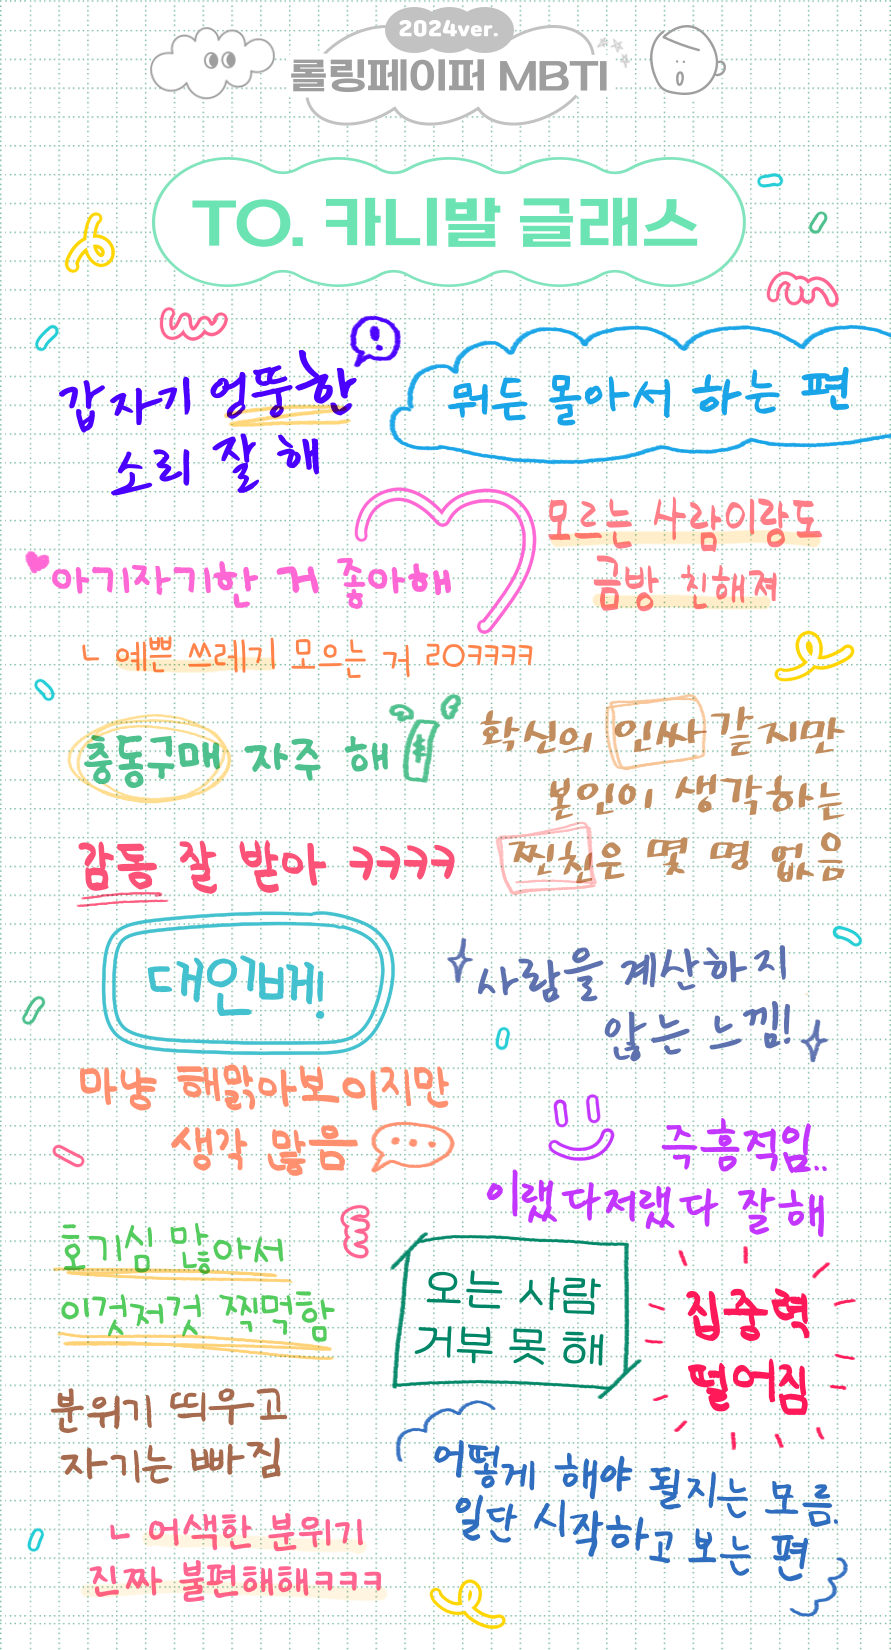 2024ver.
롤링페이퍼 MBTI
TO. 카니발 글래스
갑자기 엉뚱한
소리 잘 해
뭐든 몰아서 하는 편
모르는 사람이랑도
금방 친해져
아기자기한 거 좋아해
ㄴ 예쁜 쓰레기 모으는 거 ㄹㅇㅋㅋㅋㅋ
충동구매 자주 해
확신의 인싸같지만
본인이 생각하는
찐친은 몇 명 없음
감동 잘 받아 ㅋㅋㅋㅋ
대인배!
사람을 계산하지
않는 느낌!
마냥 해맑아보이지만
생각 많음
즉흥적임..
이랬다저랬다 잘해
호기심 많아서
이것저것 찍먹함
오는 사람
거부 못 해
집중력
떨어짐
분위기 띄우고
자기는 빠짐
ㄴ 어색한 분위기
진짜 불편해해ㅋㅋㅋ
어떻게 해야 될지는 모름.
일단 시작하고 보는 편